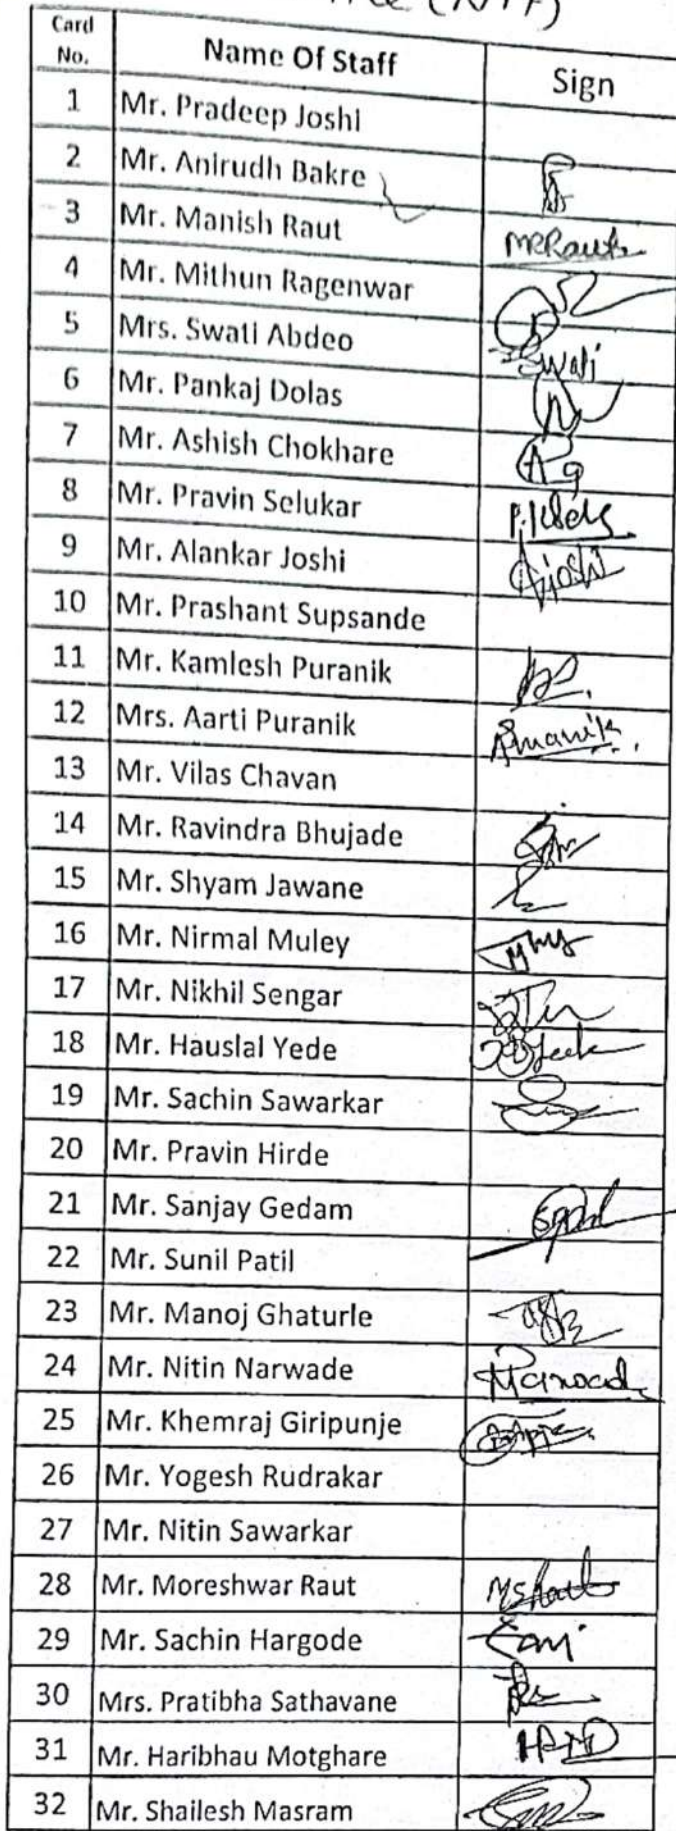 (NTF)
Card No. Name Of Staff Sign
1 Mr. Pradeep Joshi
2 Mr. Anirudh Bakre
3 Mr. Manish Raut MRRaut
4 Mr. Mithun Ragenwar
5 Mrs. Swati Abdeo Swati
6 Mr. Pankaj Dolas
7 Mr. Ashish Chokhare
8 Mr. Pravin Selukar
9 Mr. Alankar Joshi Ajoshi
10 Mr. Prashant Supsande
11 Mr. Kamlesh Puranik
12 Mrs. Aarti Puranik
13 Mr. Vilas Chavan
14 Mr. Ravindra Bhujade
15 Mr. Shyam Jawane
16 Mr. Nirmal Muley
17 Mr. Nikhil Sengar
18 Mr. Hauslal Yede
19 Mr. Sachin Sawarkar
20 Mr. Pravin Hirde
21 Mr. Sanjay Gedam
22 Mr. Sunil Patil
23 Mr. Manoj Ghaturle
24 Mr. Nitin Narwade
25 Mr. Khemraj Giripunje
26 Mr. Yogesh Rudrakar
27 Mr. Nitin Sawarkar
28 Mr. Moreshwar Raut
29 Mr. Sachin Hargode
30 Mrs. Pratibha Sathavane
31 Mr. Haribhau Motghare
32 Mr. Shailesh Masram